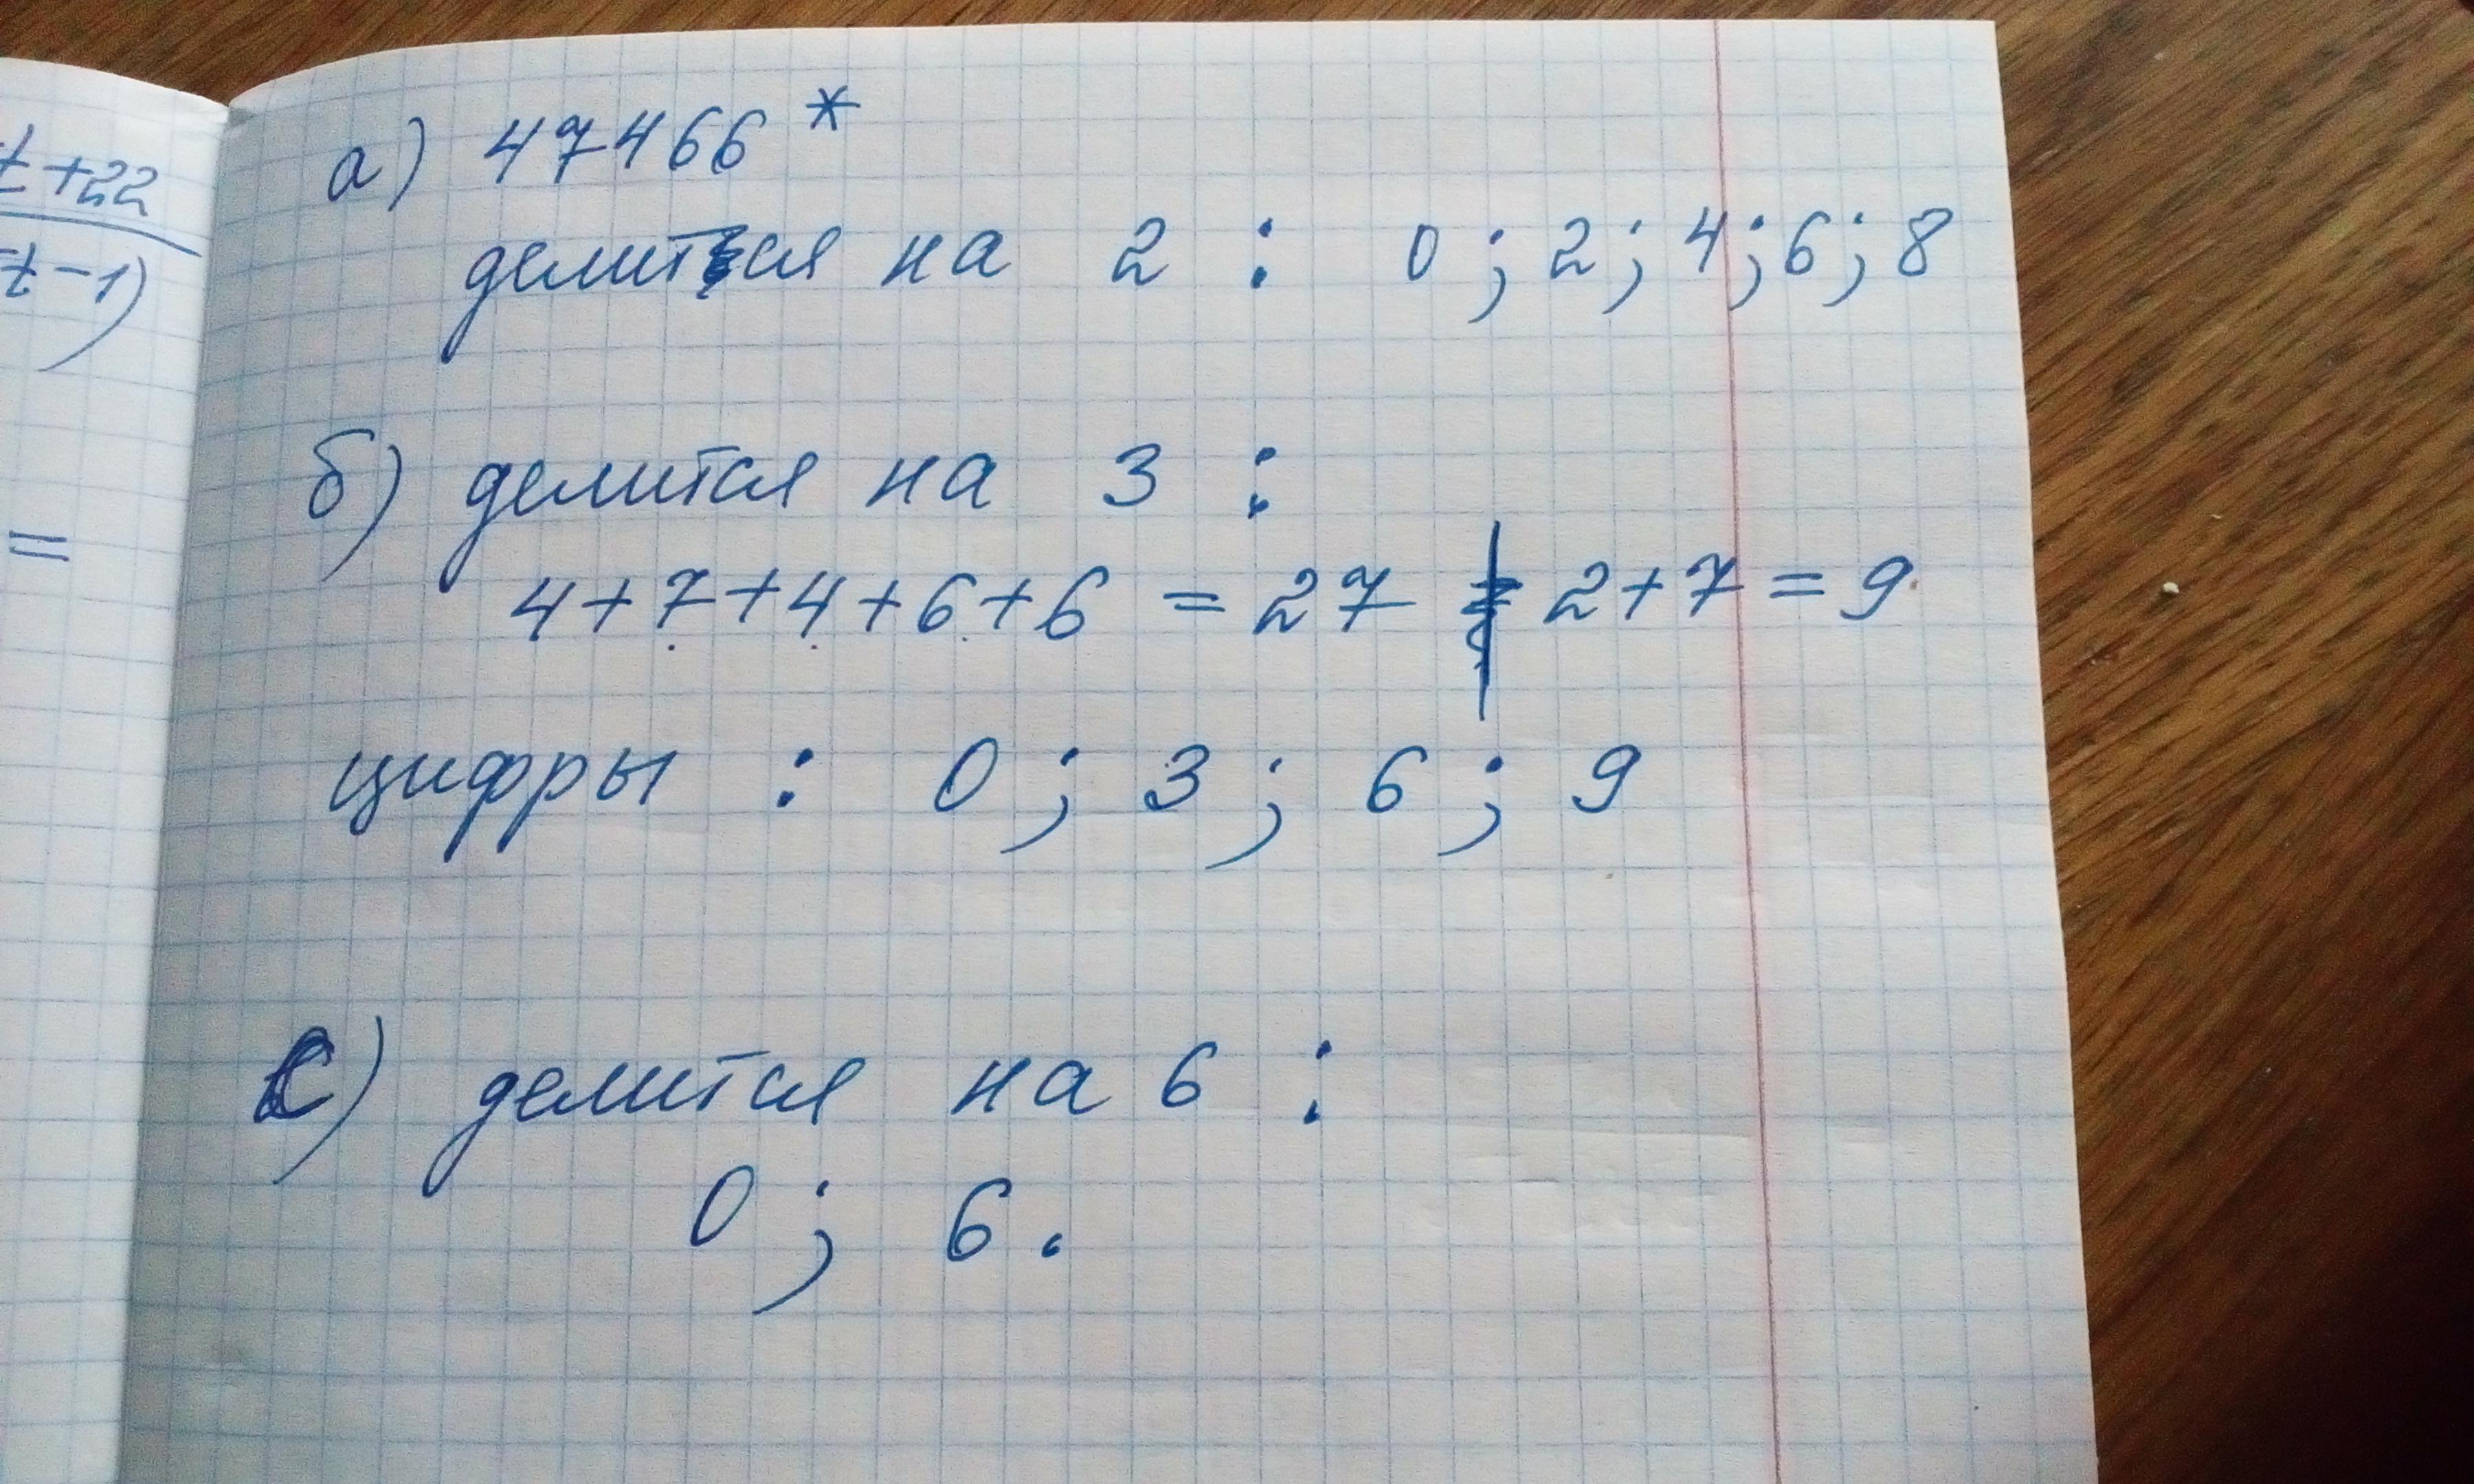 t+22
t-1)
=
а) 47466*
делится на 2 : 0; 2; 4; 6; 8
б) делится на 3 :
4+7+4+6+6 = 27 2+7=9
цифры : 0; 3; 6; 9
с) делится на 6 :
0; 6.